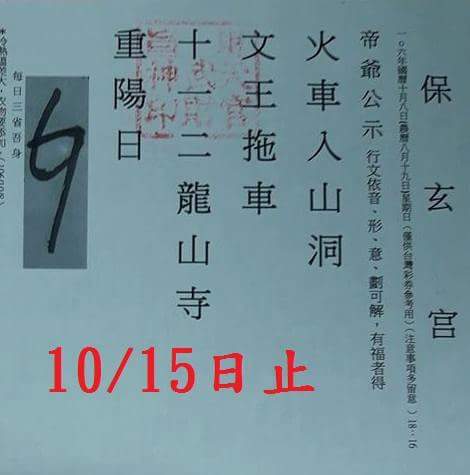 保玄宮
一0六年國曆十月八日(農曆八月十九日)星期日(僅供台灣彩券參考用)(注意事項多留意)18:16
帝爺公示 行文依音、形、意、劃可解,有福者得
火車入山洞
文王拖車
十一二龍山寺
重陽日
每日三省吾身
10/15日止